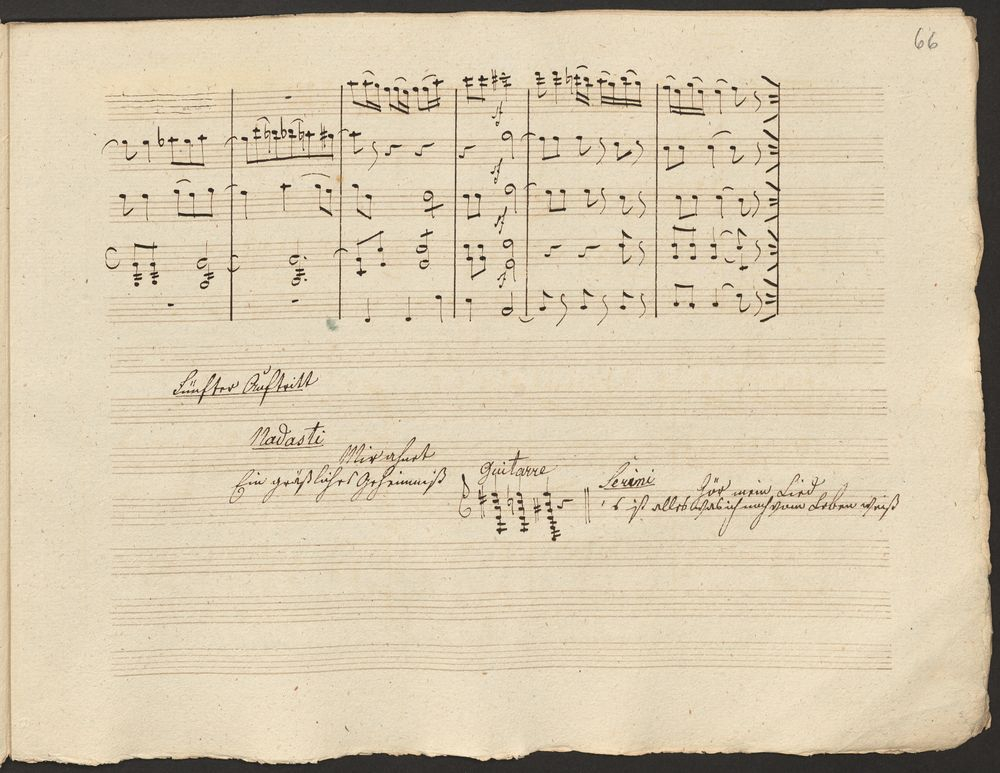 66
Fünfter Auftritt
Nadasti
Mir ahnet
Ein gräßliches Geheimniß
Guitarre
Serini
Hör mein Lied
's ist alles was ich noch vom Leben weiß